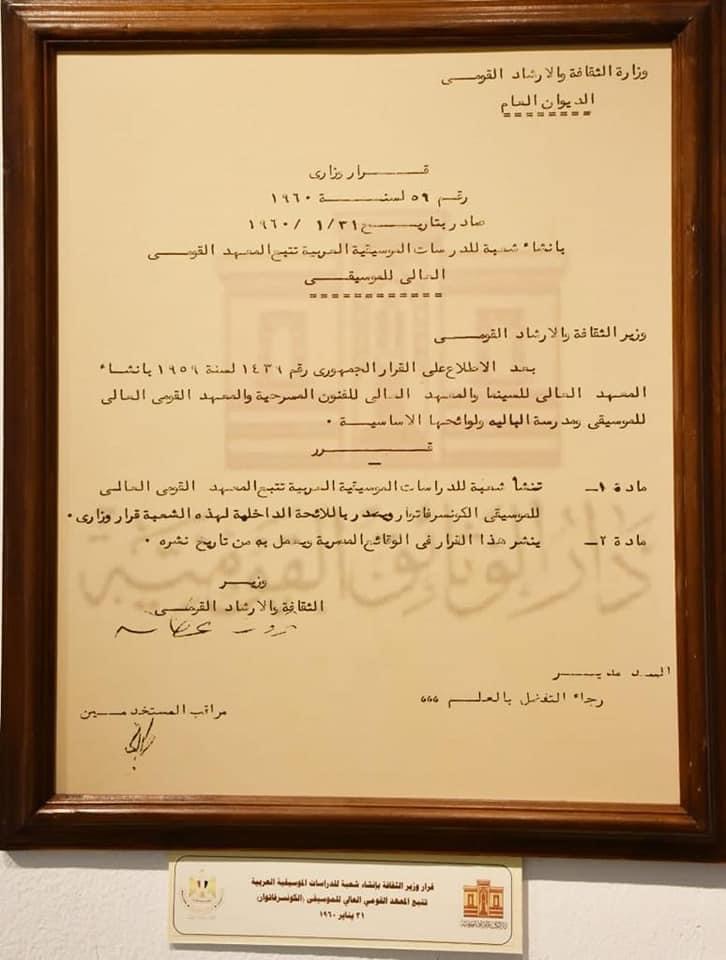 وزارة الثقافة والارشاد القومى
الديوان العام
قرار وزارى
رقم ٥٩ لسنة ١٩٦٠
صادر بتاريخ ١/٣١ /١٩٦٠
بانشاء شعبة للدراسات الموسيقية العربية تتبع المعهد القومى
العالى للموسيقى
وزير الثقافة والارشاد القومى
بعد الاطلاع على القرار الجمهورى رقم ١٤٣٩ لسنة ١٩٥٩ بانشاء
المعهد العالى للسينما والمعهد العالى للفنون المسرحية والمعهد القومى العالى
للموسيقى ومدرسة الباليه ولوائحها الاساسية .
قرر
مادة ١ــ تنشأ شعبة للدراسات الموسيقية العربية تتبع المعهد القومى العالى
للموسيقى الكونسرفاتوار ويصدر باللائحة الداخلية لهذه الشعبة قرار وزارى .
مادة ٢ــ ينشر هذا القرار فى الوقائع المصرية ويعمل به من تاريخ نشره .
وزير
الثقافة والارشاد القومى
ثروت عكاشه
السيد مدير
رجاء التفضل بالعلم ،،،
مراقب المستخدمين
دار الوثائق القومية
قرار وزير الثقافة بإنشاء شعبة للدراسات الموسيقية العربية
تتبع المعهد القومي العالي للموسيقى (الكونسرفاتوار)
٣١ يناير ١٩٦٠